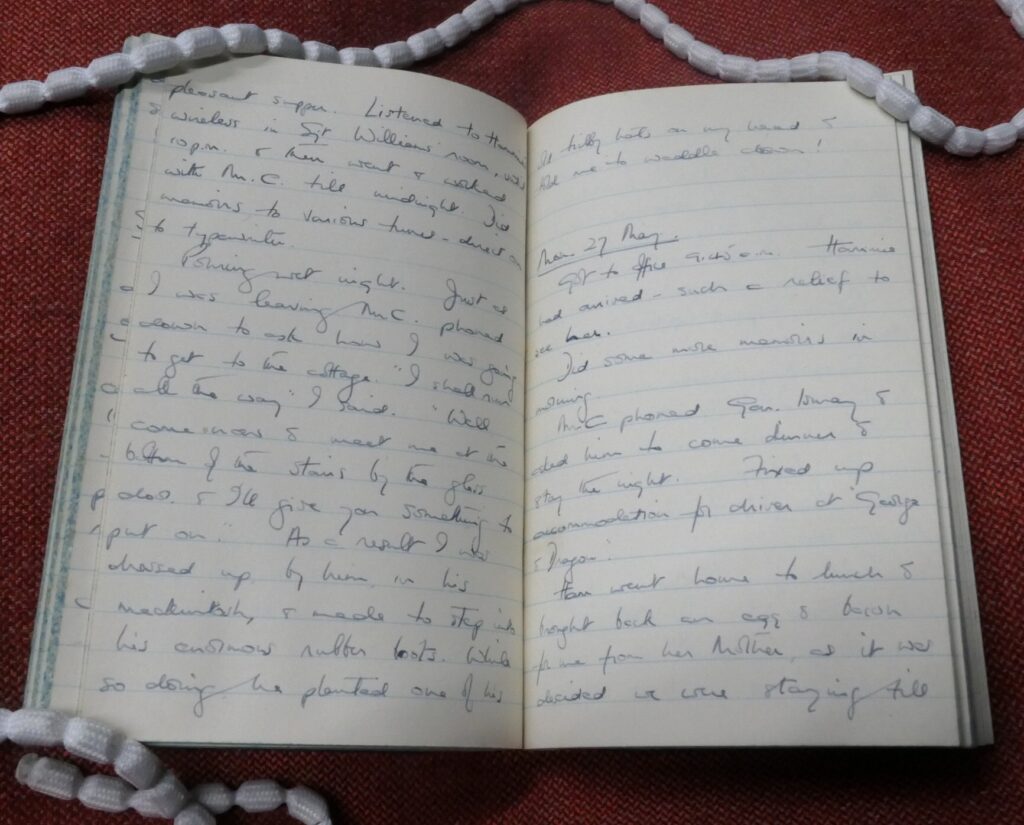 pleasant supper. Listened to
wireless in Sgt Williams' room, until
10 p.m. & then went & worked
with Mr. C. till midnight. Did
memoirs to various tunes - direct on
to typewriter.
Pouring wet night. Just as
I was leaving Mr C. phoned
down to ask how I was going
to get to the cottage. "I shall run
all the way" I said. "Well
come now & meet me at the
bottom of the stairs by the glass
door & I'll give you something to
put on." As a result I was
dressed up, by him, in his
mackintosh, & made to step into
his enormous rubber boots. While
so doing he planted one of his
hats on my head &
told me to waddle down!
Mon. 27 May.
Got to office a.m. Hammie
had arrived - such a relief to
see her.
Did some more memoirs in
morning
Mr C phoned Gen. Ismay &
asked him to come dinner &
stay the night. Fixed up
accommodation for driver at 'George
& Dragon'.
Ham went home to lunch &
brought back an egg & bacon
for me from her Mother, as it was
decided we were staying till